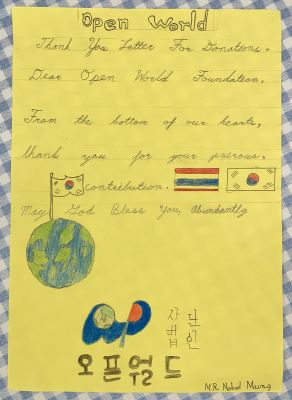 Open World
Thank You Letter For Donations.
Dear Open World Foundation,
From the bottom of our hearts,
thank you for your generous,
contribution.
May God Bless You, Abundantly
사단
법인
오픈월드
N.R. Nobel Maung